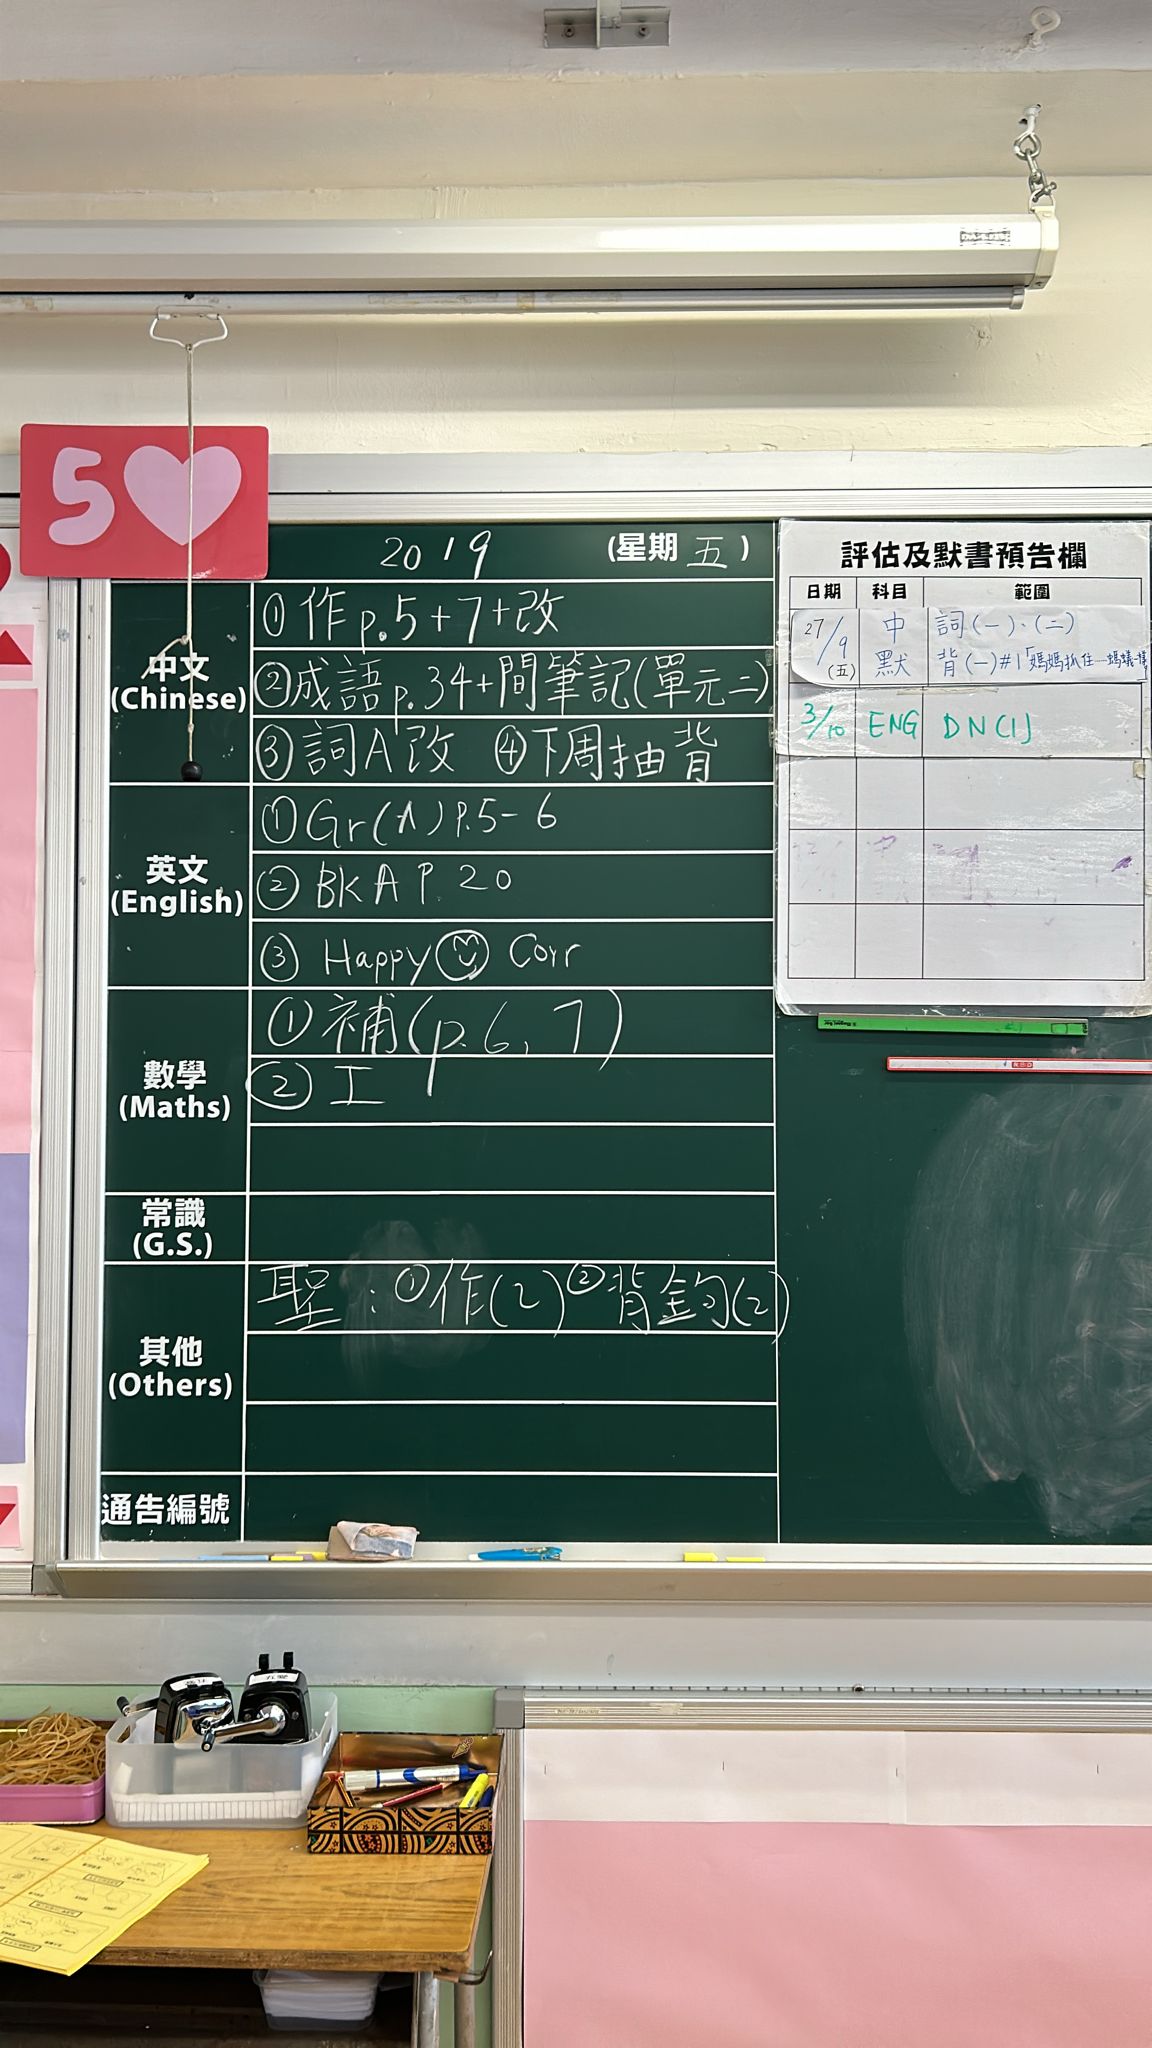 5
2019 (星期 五 )
中文
(Chinese)
①作p.5+7+改
②成語p.34+間筆記(單元二)
③詞A改 ④下周抽背
英文
(English)
①Gr(A) P.5-6
② BK A P. 20
③ Happy Corr
數學
(Maths)
①補(p.6, 7)
② 工
常識
(G.S.)
其他
(Others)
聖:①作(2)②背鈞(2)
通告編號
評估及默書預告欄
日期 科目 範圍
27/9 (五) 中默 詞(一)、(二)
背(一)#1「媽媽抓住…螞蟻一樣
3/10 ENG DN(1)